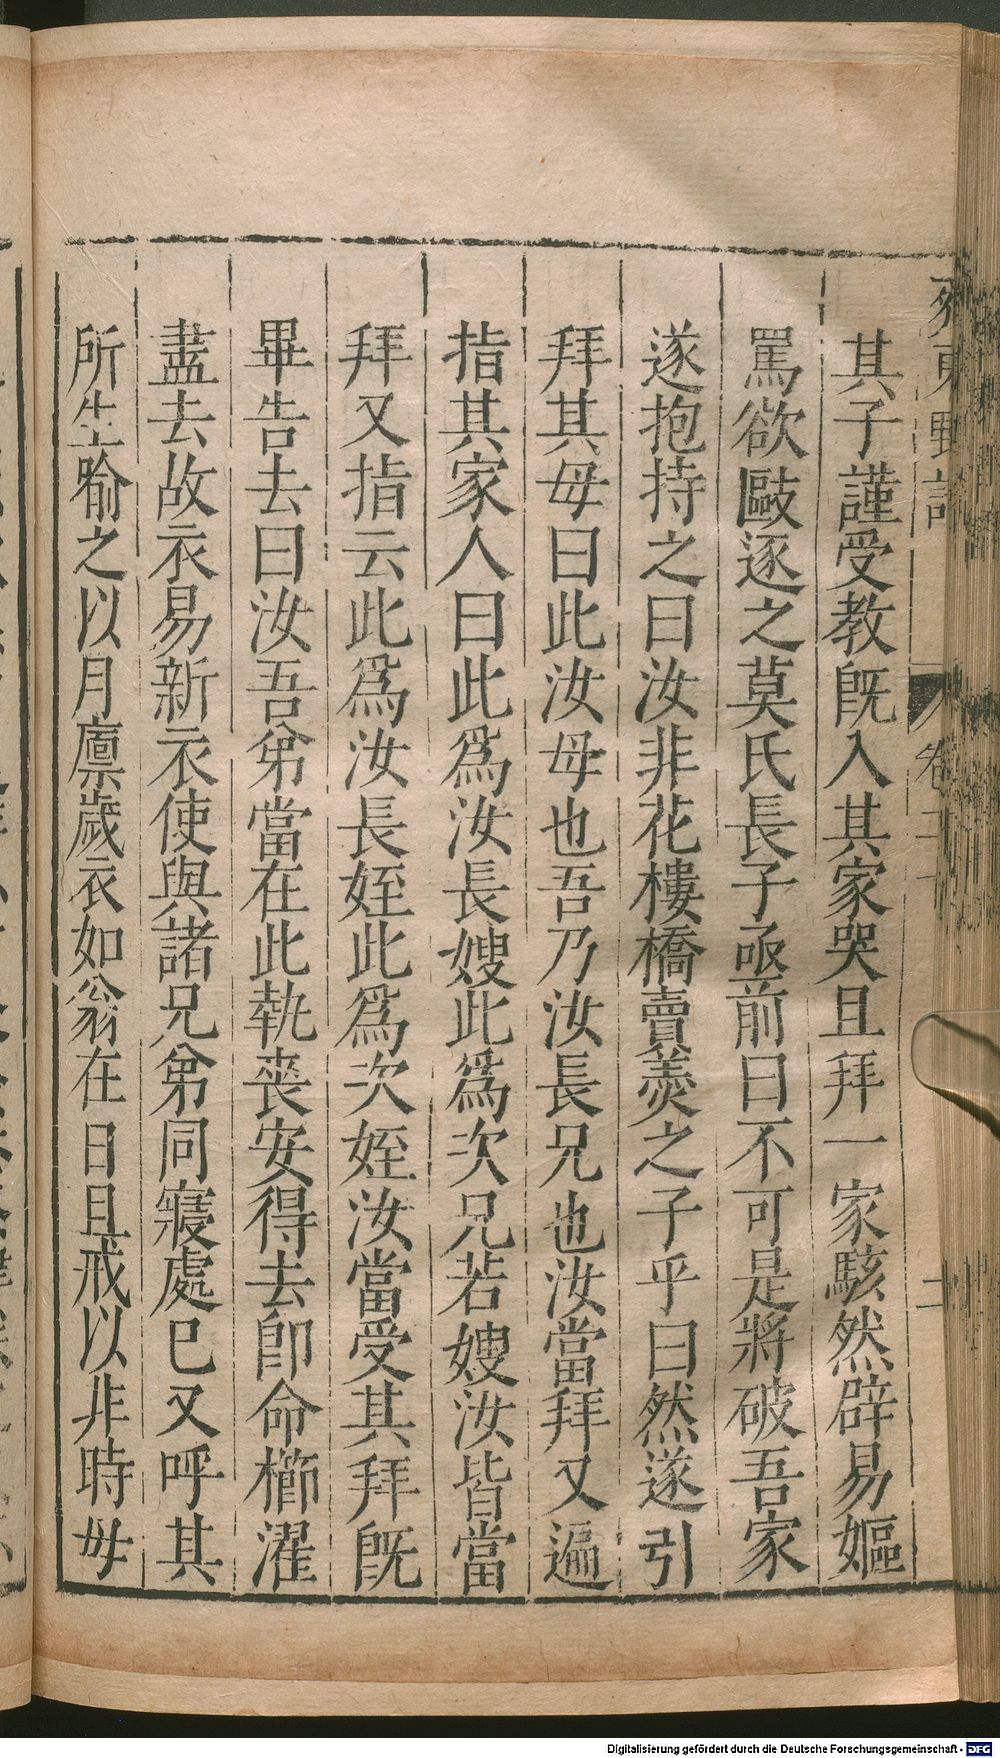 其子謹受教旣入其家哭且拜一家駭然辟易嫗
罵欲歐逐之莫氏長子亟前曰不可是將破吾家
遂抱持之曰汝非花樓橋賣羮之子乎曰然遂引
拜其母曰此汝母也吾乃汝長兄也汝當拜又遍
指其家人曰此爲汝長嫂此爲次兄若嫂汝皆當
拜又指云此爲汝長姪此爲次姪汝當受其拜旣
畢告去曰汝吾弟當在此執喪安得去卽命櫛濯
盡去故衣易新衣使與諸兄弟同寢處已又呼其
所生喻之以月廩歲衣如翁在日且戒以非時毋
野
卷二十
二
Digitalisierung gefördert durch die Deutsche Forschungsgemeinschaft - DFG